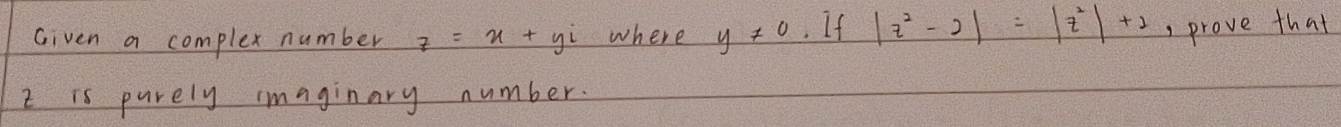 Given a complex number z = x + yi where y ≠ 0. If |z² - 2| = |z²| + 2, prove that
z is purely imaginary number.